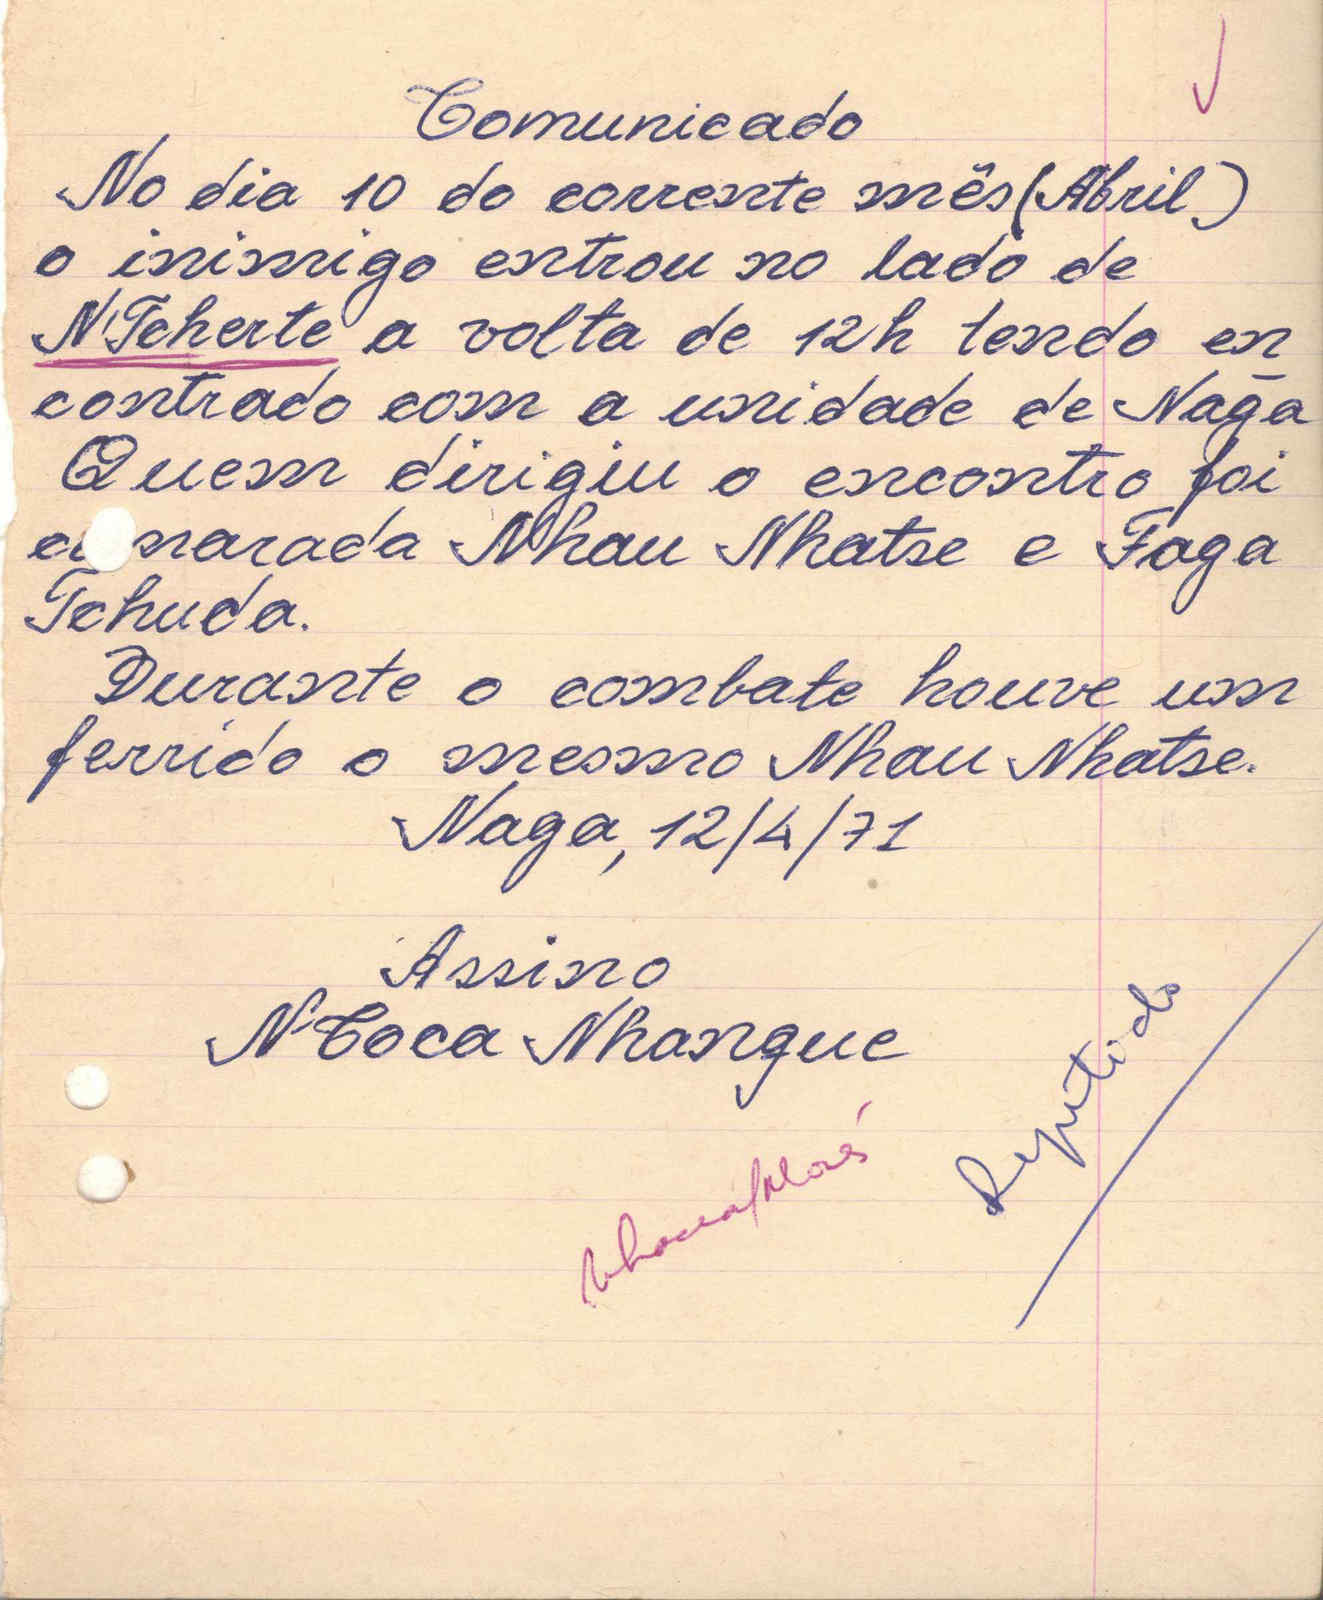 Comunicado
No dia 10 do corrente mês (Abril)
o inimigo entrou no lado de
N'Tcherte a volta de 12h tendo en
contrado com a unidade de Naga
Quem dirigiu o encontro foi
camarada Nhau Nhatse e Faga
Tchuda.
Durante o combate houve um
ferrido o mesmo Nhau Nhatse.
Naga, 12/4/71
Assino
N'Toca Nhangue
Repetido